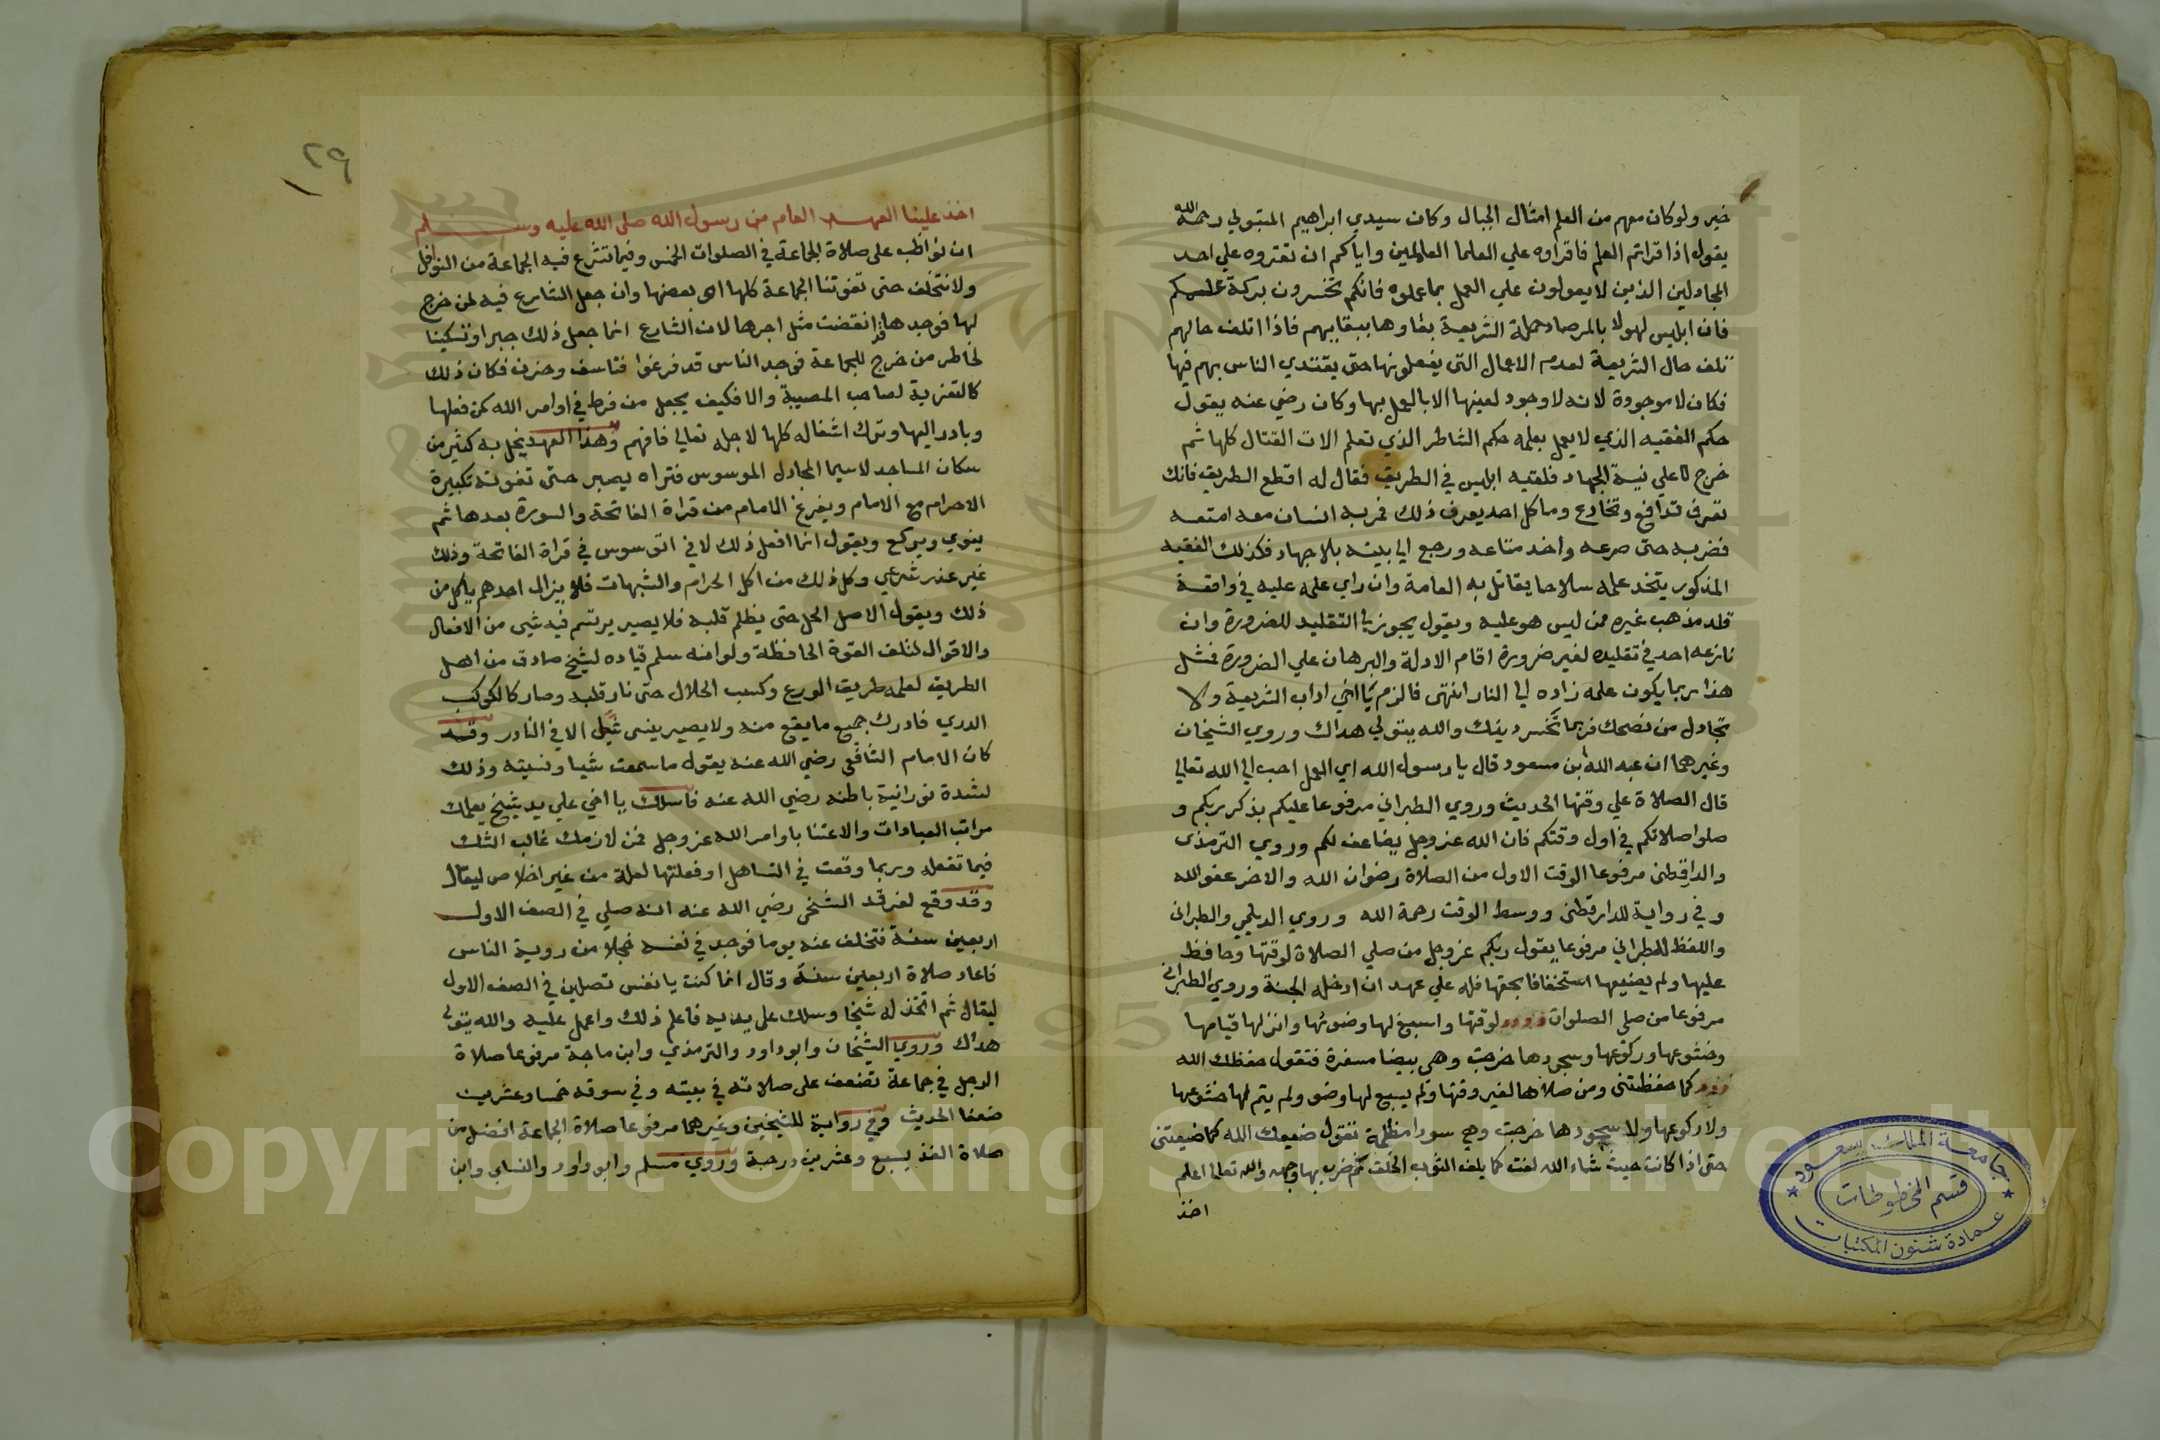 خير ولو كان معهم من العلم امثال الجبال وكان سيدي ابراهيم المتبولي رحمه الله
يقول اذا قراتم العلم فاقراوه علي العلما العاملين واياكم ان تقروه علي احد
المجادلين الذين لا يعولون علي العمل بما علموه فانكم تخسرون بركة علمكم
فان ابليس لهولا بالمرصاد حملة الشريعة بقاوها ببقايهم فاذا اتلف حالهم
تلف حال الشريعة لعدم الاعمال التي يفعلونها حتي يقتدي الناس بهم فيها
فكان لا موجودة لانه لا وجود لعينها الا بالعمل بها وكان رضي عنه يقول
حكم الفقيه الذي لا يعمل بعلمه حكم الشاطر الذي تعلم الات القتال كلها ثم
خرج لا علي نية الجهاد فلقيه ابليس في الطريق فقال له اقطع الطريق فانك
تعرف تدافع وتخادع وما كل احد يعرف ذلك فمر به انسان معه امتعه
فضربه حتي صرعه واخد متاعه ورجع الي بيته بلا جهاد فكذلك الفقيه
المذكور يتخد علمه سلاحا يقاتل به العامة وان راي علمه عليه في واقعة
قلد مذهب غيره ممن ليس هو عليه ويقول يجوز لي التقليد للضرورة وان
نازعه احد في تقليده لغير ضرورة اقام الادلة والبرهان علي الضرورة فمثل
هذا ربما يكون علمه زاده الي النار انتهي فالزم يا اخي اداب الشريعة ولا
تجادل من نصحك فربما تخسر دينك والله يتولي هداك وروي الشيخان
وغيرهما ان عبد الله بن مسعود قال يا رسول الله اي العمل احب الي الله تعالي
قال الصلاة علي وقتها الحديث وروي الطبراني مرفوعا عليكم بذكر ربكم و
صلوا صلاتكم في اول وقتكم فان الله عز وجل يضاعف لكم وروي الترمذي
والدارقطني مرفوعا الوقت الاول من الصلاة رضوان الله والاخر عفو الله
وفي رواية للدارقطني ووسط الوقت رحمة الله وروي الديلمي والطبراني
واللفظ للطبراني مرفوعا يقول ربكم عز وجل من صلي الصلاة لوقتها وحافظ
عليها ولم يضيعها استخفافا بحقها فله علي عهد ان ادخله الجنة وروي الطبراني
مرفوعا من صلي الصلوات لوقتها واسبغ لها وضوئها واتم لها قيامها
وخشوعها وركوعها وسجودها خرجت وهي بيضا مسفرة فتقول حفظك الله
كما حفظتني ومن صلاها لغير وقتها ولم يسبغ لها وضو ولم يتم لها خشوعها
ولا ركوعها ولا سجودها خرجت وهي سودا مظلمة تقول ضيعك الله كما ضيعتني
حتي اذا كانت حيث شاء الله لفت كما يلف الثوب الخلق ثم ضرب بها وجهه والله تعالي اعلم
اخذ
جامعة الملك سعود
قسم المخطوطات
عمادة شئون المكتبات
٢٩
اخذ علينا العهد العام من رسول الله صلي الله عليه وسلم
ان نواظب علي صلاة الجماعة في الصلوات الخمس وفيما تشرع فيه الجماعة من النوافل
ولا نتخلف حتي تفوتنا الجماعة كلها او بعضها وان جعل الشارع فيه لمن خرج
لها فوجدها قد انقضت مثل اجرها لان الشارع انما جعل ذلك جبرا وتسكينا
لخاطر من خرج للجماعة فوجد الناس قد فرغوا فتاسف وحزن فكان ذلك
كالتعزية لصاحب المصيبة والا فكيف يجعل من فرط في اوامر الله كمن فعلها
وبادر اليها وترك اشغاله كلها لاجله تعالي فافهم وهذا العهد يخل به كثير من
سكان المساجد لاسيما المجادل الموسوس فتراه يصبر حتي تفوته تكبيرة
الاحرام مع الامام ويفرغ الامام من قراة الفاتحة والسورة بعدها ثم
ينوي ويركع ويقول انما افعل ذلك لاني اتوسوس في قراة الفاتحة وذلك
غير عذر شرعي وكل ذلك من اكل الحرام والشبهات فلا يزال احدهم ياكل من
ذلك ويقول الاصل الحل حتي يظلم قلبه فلا يصير يرتسم فيه شي من الافعال
والاقوال لتلف القوة الحافظة ولو انه سلم قياده لشيخ صادق من اهل
الطريق لعلمه طريق الورع وكسب الحلال حتي نار قلبه وصار كالكوكب
الدري فادرك جميع ما يقع منه ولا يصير ينسي شيا الا في النادر وقد
كان الامام الشافعي رضي الله عنه يقول ما سمعت شيا ونسيته وذلك
لشدة نورانية باطنه رضي الله عنه فاسلك يا اخي علي يد شيخ يعلمك
مراتب العبادات والاعتنا باوامر الله عز وجل فمن لازمك غالب الشك
فيما تفعله وربما وقعت في التساهل او فعلتها لعلة من غير اخلاص ليقال
وقد وقع لفرقد السنجي رضي الله عنه انه صلي في الصف الاول
اربعين سنة فتخلف عنه يوما فوجد في نفسه خجلا من روية الناس
فاعاد صلاة اربعين سنة وقال انما كنت يا نفس تصلين في الصف الاول
ليقال ثم اتخذ له شيخا وسلك علي يديه فاعلم ذلك واعمل عليه والله يتولي
هداك وروي الشيخان وابو داود والترمذي وابن ماجة مرفوعا صلاة
الرجل في جماعة تضعف علي صلاته في بيته وفي سوقه خمسا وعشرين
ضعفا الحديث وفي رواية للشيخين وغيرهما مرفوعا صلاة الجماعة افضل من
صلاة الفذ بسبع وعشرين درجة وروي مسلم وابو داود والنساي وابن
Copyright © King Saud University
1957